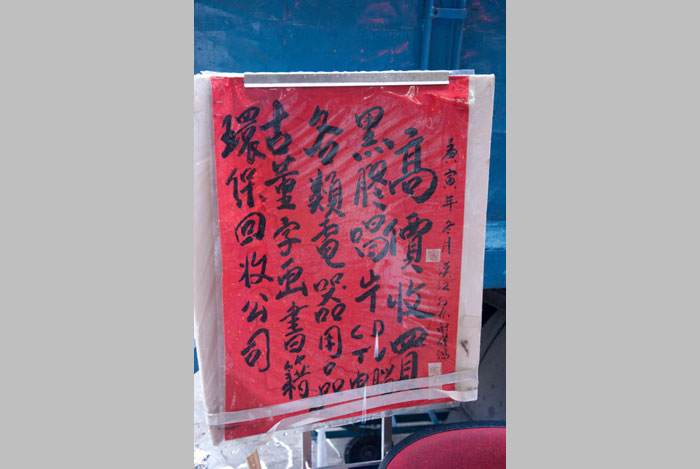 庚寅年冬月
高價收買
黑膠唱片
各類電器用品
古董字画書籍
環保回收公司